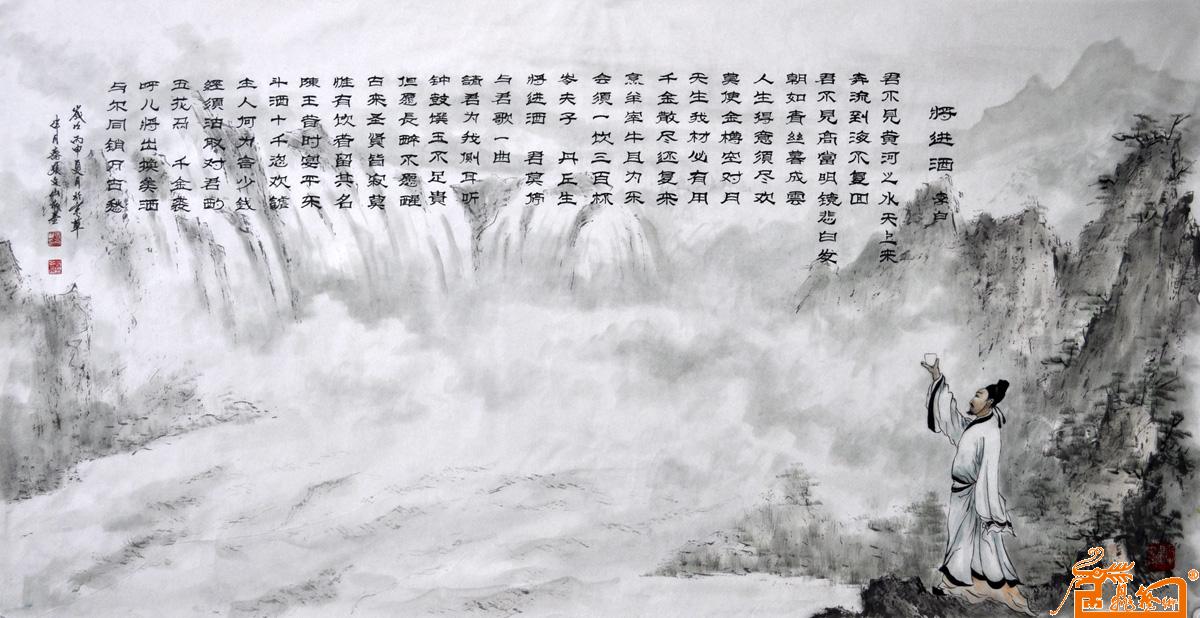 将进酒 李白
君不见黄河之水天上来
奔流到海不复回
君不见高堂明镜悲白发
朝如青丝暮成雪
人生得意须尽欢
莫使金樽空对月
天生我材必有用
千金散尽还复来
烹羊宰牛且为乐
会须一饮三百杯
岑夫子 丹丘生
将进酒 君莫停
与君歌一曲
请君为我侧耳听
钟鼓馔玉不足贵
但愿長醉不愿醒
古来圣賢皆寂莫
惟有饮者留其名
陳王昔时宴平乐
斗酒十千恣欢謔
主人何为言少钱
經须沽取对君酌
五花马 千金裘
呼儿将出换美酒
与尔同销万古愁
岁次丙申夏月